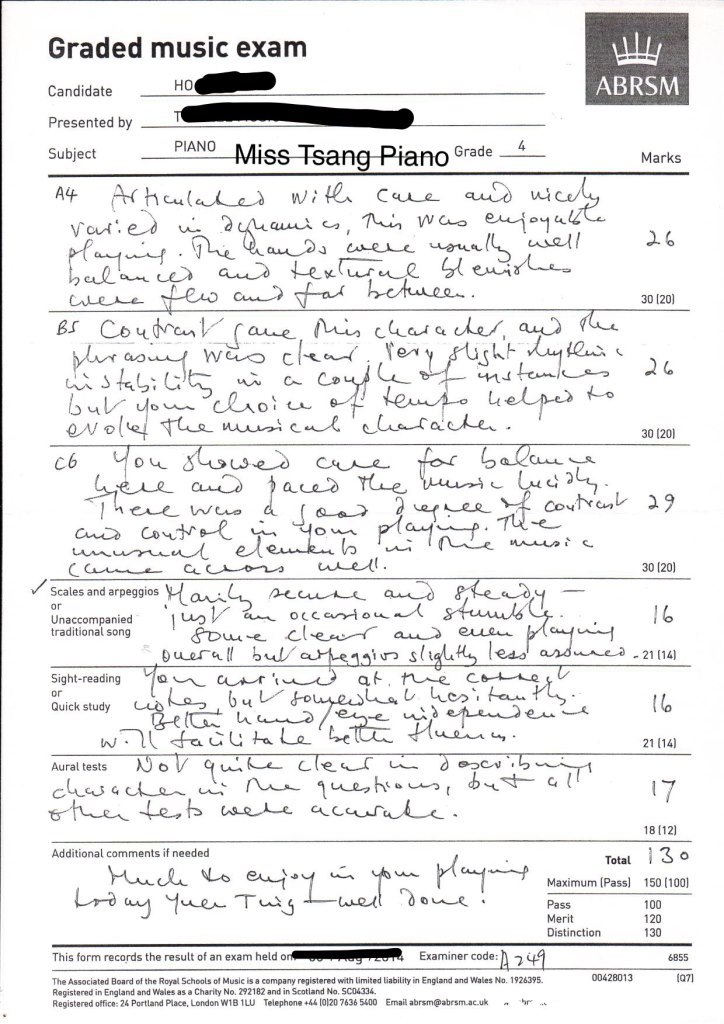 Graded music exam
ABRSM
Candidate HO
Presented by T
Subject PIANO Miss Tsang Piano Grade 4 Marks
A4 Articulated with care and nicely
varied in dynamics, this was enjoyable
playing. The hands were usually well 26
balanced and textural blemishes
were few and far between.
30 (20)
B5 Contrast gave this character, and the
phrasing was clear. Very slight rhythmic
instability in a couple of instances 26
but your choice of tempo helped to
evoke the musical character.
30 (20)
C6 You showed care for balance
here and paced the music lucidly.
There was a good degree of contrast 29
and control in your playing. The
unusual elements in the music
came across well.
30 (20)
✓ Scales and arpeggios
or
Unaccompanied
traditional song
Mainly secure and steady —
just an occasional stumble. 16
Some clear and even playing
overall but arpeggios slightly less assured. 21 (14)
Sight-reading
or
Quick study
You arrived at the correct
notes, but somewhat hesitantly. 16
Better hand/eye independence
will facilitate better fluency.
21 (14)
Aural tests Not quite clear in describing
character in the questions, but all 17
other tests were accurate.
18 (12)
Additional comments if needed
Much to enjoy in your playing
today Yuen Ting — well done!
Total 130
Maximum (Pass) 150 (100)
Pass 100
Merit 120
Distinction 130
This form records the result of an exam held on Examiner code: A249 6855
The Associated Board of the Royal Schools of Music is a company registered with limited liability in England and Wales No. 1926395.
Registered in England and Wales as a Charity No. 292182 and in Scotland No. SC04334.
Registered office: 24 Portland Place, London W1B 1LU Telephone +44 (0)20 7636 5400 Email abrsm@abrsm.ac.uk
00428013 (Q7)